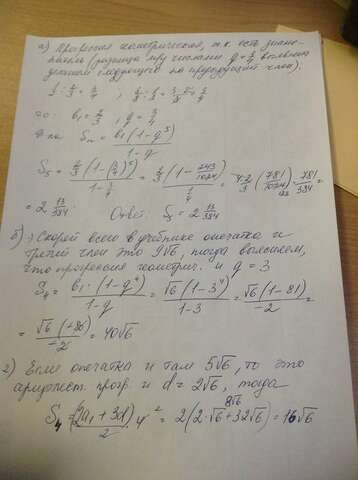 а) Прогрессия геометрическая, т.к. есть знаме-
натель (разница при числами q = 3/4 
деления следующего на предыдущий член).
1/2 : 2/3 = 3/4 ; 3/8 : 1/2 = 3·2/8 = 3/4
то: b₁ = 2/3, q = 3/4
Ф-ла Sₙ = b₁(1 - qⁿ)/(1 - q)
S₅ = 2/3 (1 - (3/4)⁵)/(1 - 3/4) = 2/3 (1 - 243/1024)/(1/4) = 4·2/3 (781/1024) = 781/384 =
= 2 13/384 Ответ: S₅ = 2 13/384
б) 1) Скорей всего в учебнике опечатка и
третий член это 9√6, тогда выясняем,
что прогрессия геометрич. и q = 3
S₄ = b₁·(1 - q⁴)/(1 - q) = √6 (1 - 3⁴)/(1 - 3) = √6 (1 - 81)/(-2) =
= √6 (+80)/(-2) = 40√6
2) Если опечатка и там 5√6, то это
арифмет. прогр. и d = 2√6, тогда
8√6
S₄ = (2a₁ + 3d)/2 · 4 = 2(2·√6 + 3·2√6) = 16√6